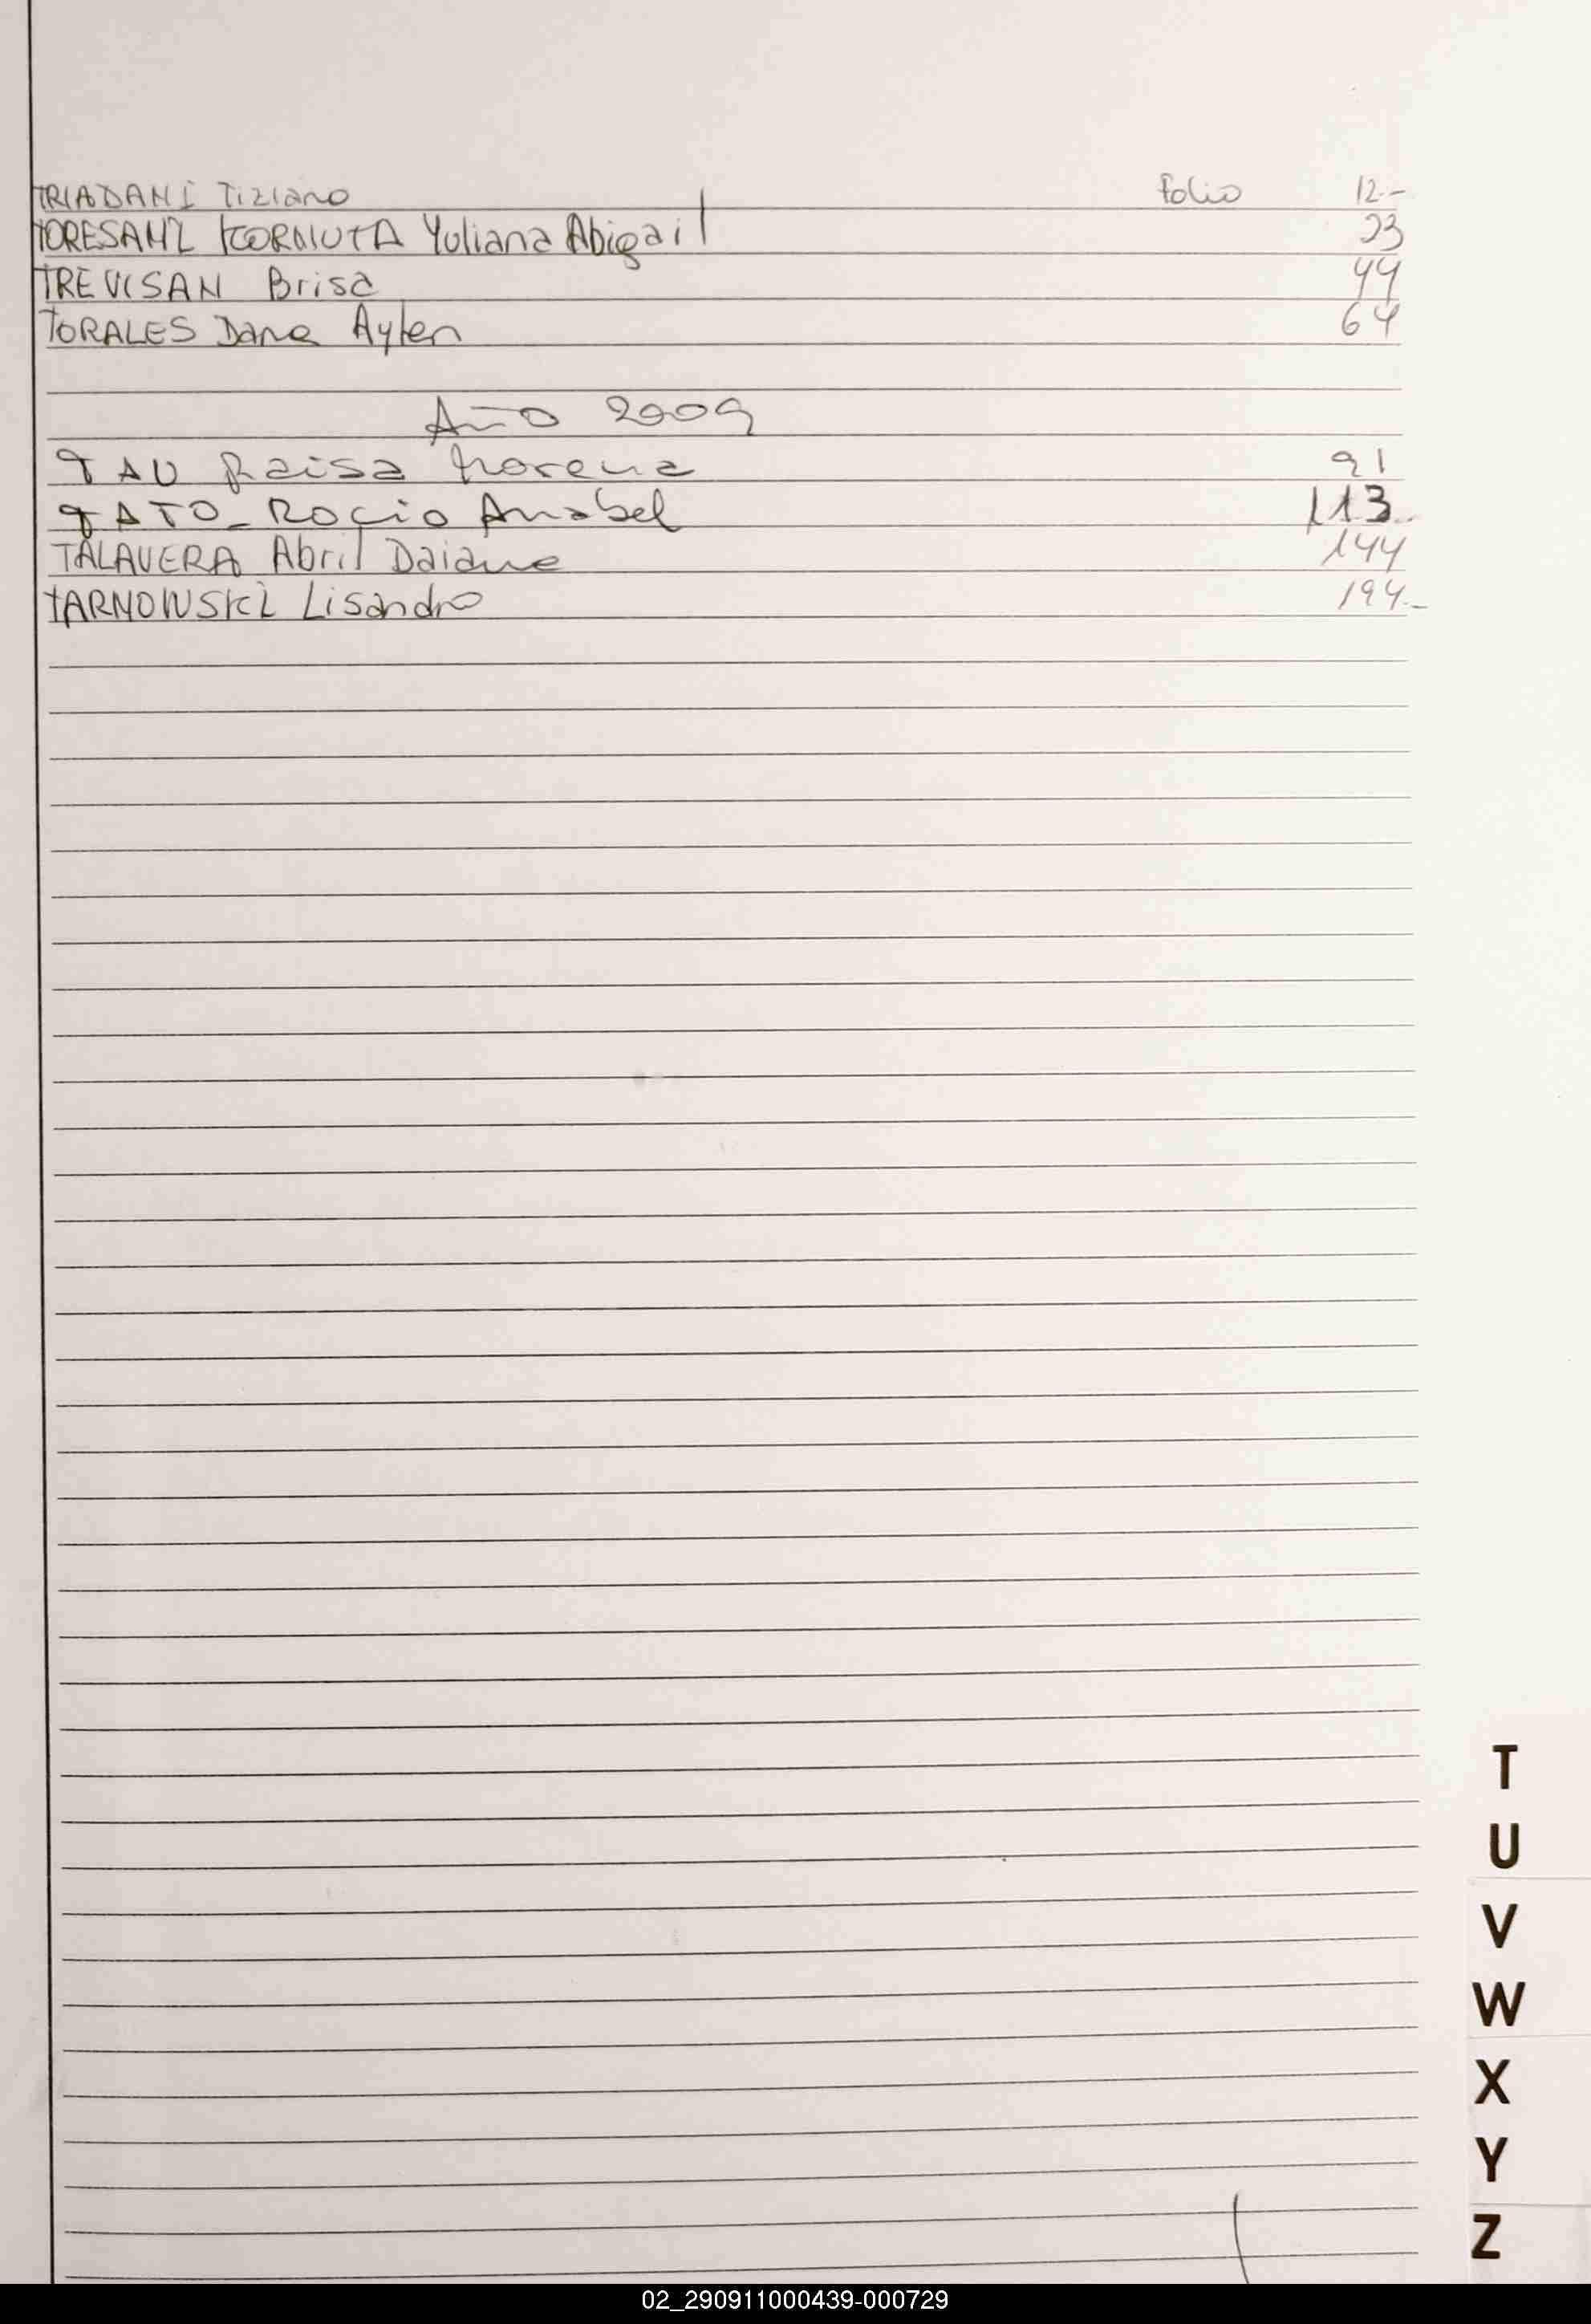 TRIADANI Tiziano Folio 12.-
TORESANI KORNIUTA Yuliana Abigail 23
TREVISAN Brisa 44
TORALES Dana Aylen 64
Año 2009
TAU Raisa Morena 91
TATO_ Rocio Anabel 113..
TALAVERA Abril Daiana 144
TARNOWSKI Lisandro 194.-
T
U
V
W
X
Y
Z
02_290911000439-000729